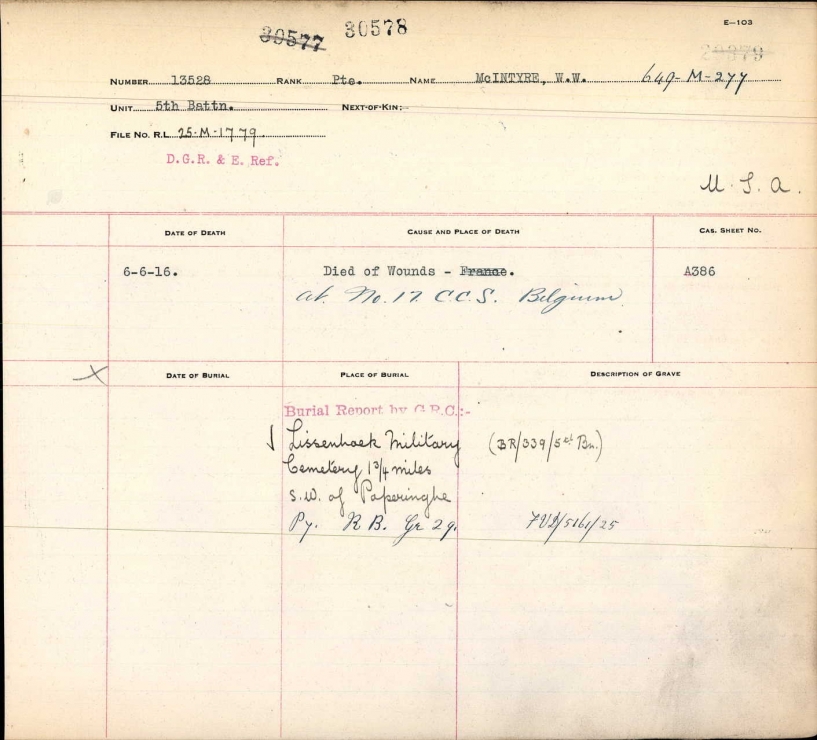 E—103
30577 30578
20379
NUMBER 13528 RANK Pte. NAME McINTYRE, W.W. 649-M-277
UNIT 5th Battn. NEXT-OF-KIN:—
FILE NO. R.L. 25-M-1779.
D.G.R. & E. Ref.
U.S.A.
DATE OF DEATH CAUSE AND PLACE OF DEATH CAS. SHEET NO.
6-6-16. Died of Wounds - France. A386
at. No. 17. C.C.S. Belgium
X DATE OF BURIAL PLACE OF BURIAL DESCRIPTION OF GRAVE
Burial Report by G.R.C.:-
Lissenhoek Military (BR/339/5th Bn.)
Cemetery 1 3/4 miles
S.W. of Poperinghe
Py. R B. Gr 29.